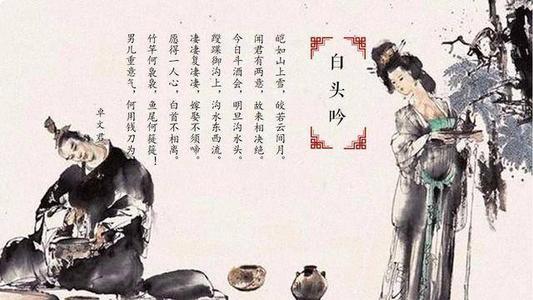 白头吟
皑如山上雪，皎若云间月。
闻君有两意，故来相决绝。
今日斗酒会，明旦沟水头。
躞蹀御沟上，沟水东西流。
凄凄复凄凄，嫁娶不须啼。
愿得一人心，白首不相离。
竹竿何袅袅，鱼尾何簁簁！
男儿重意气，何用钱刀为！
卓文君